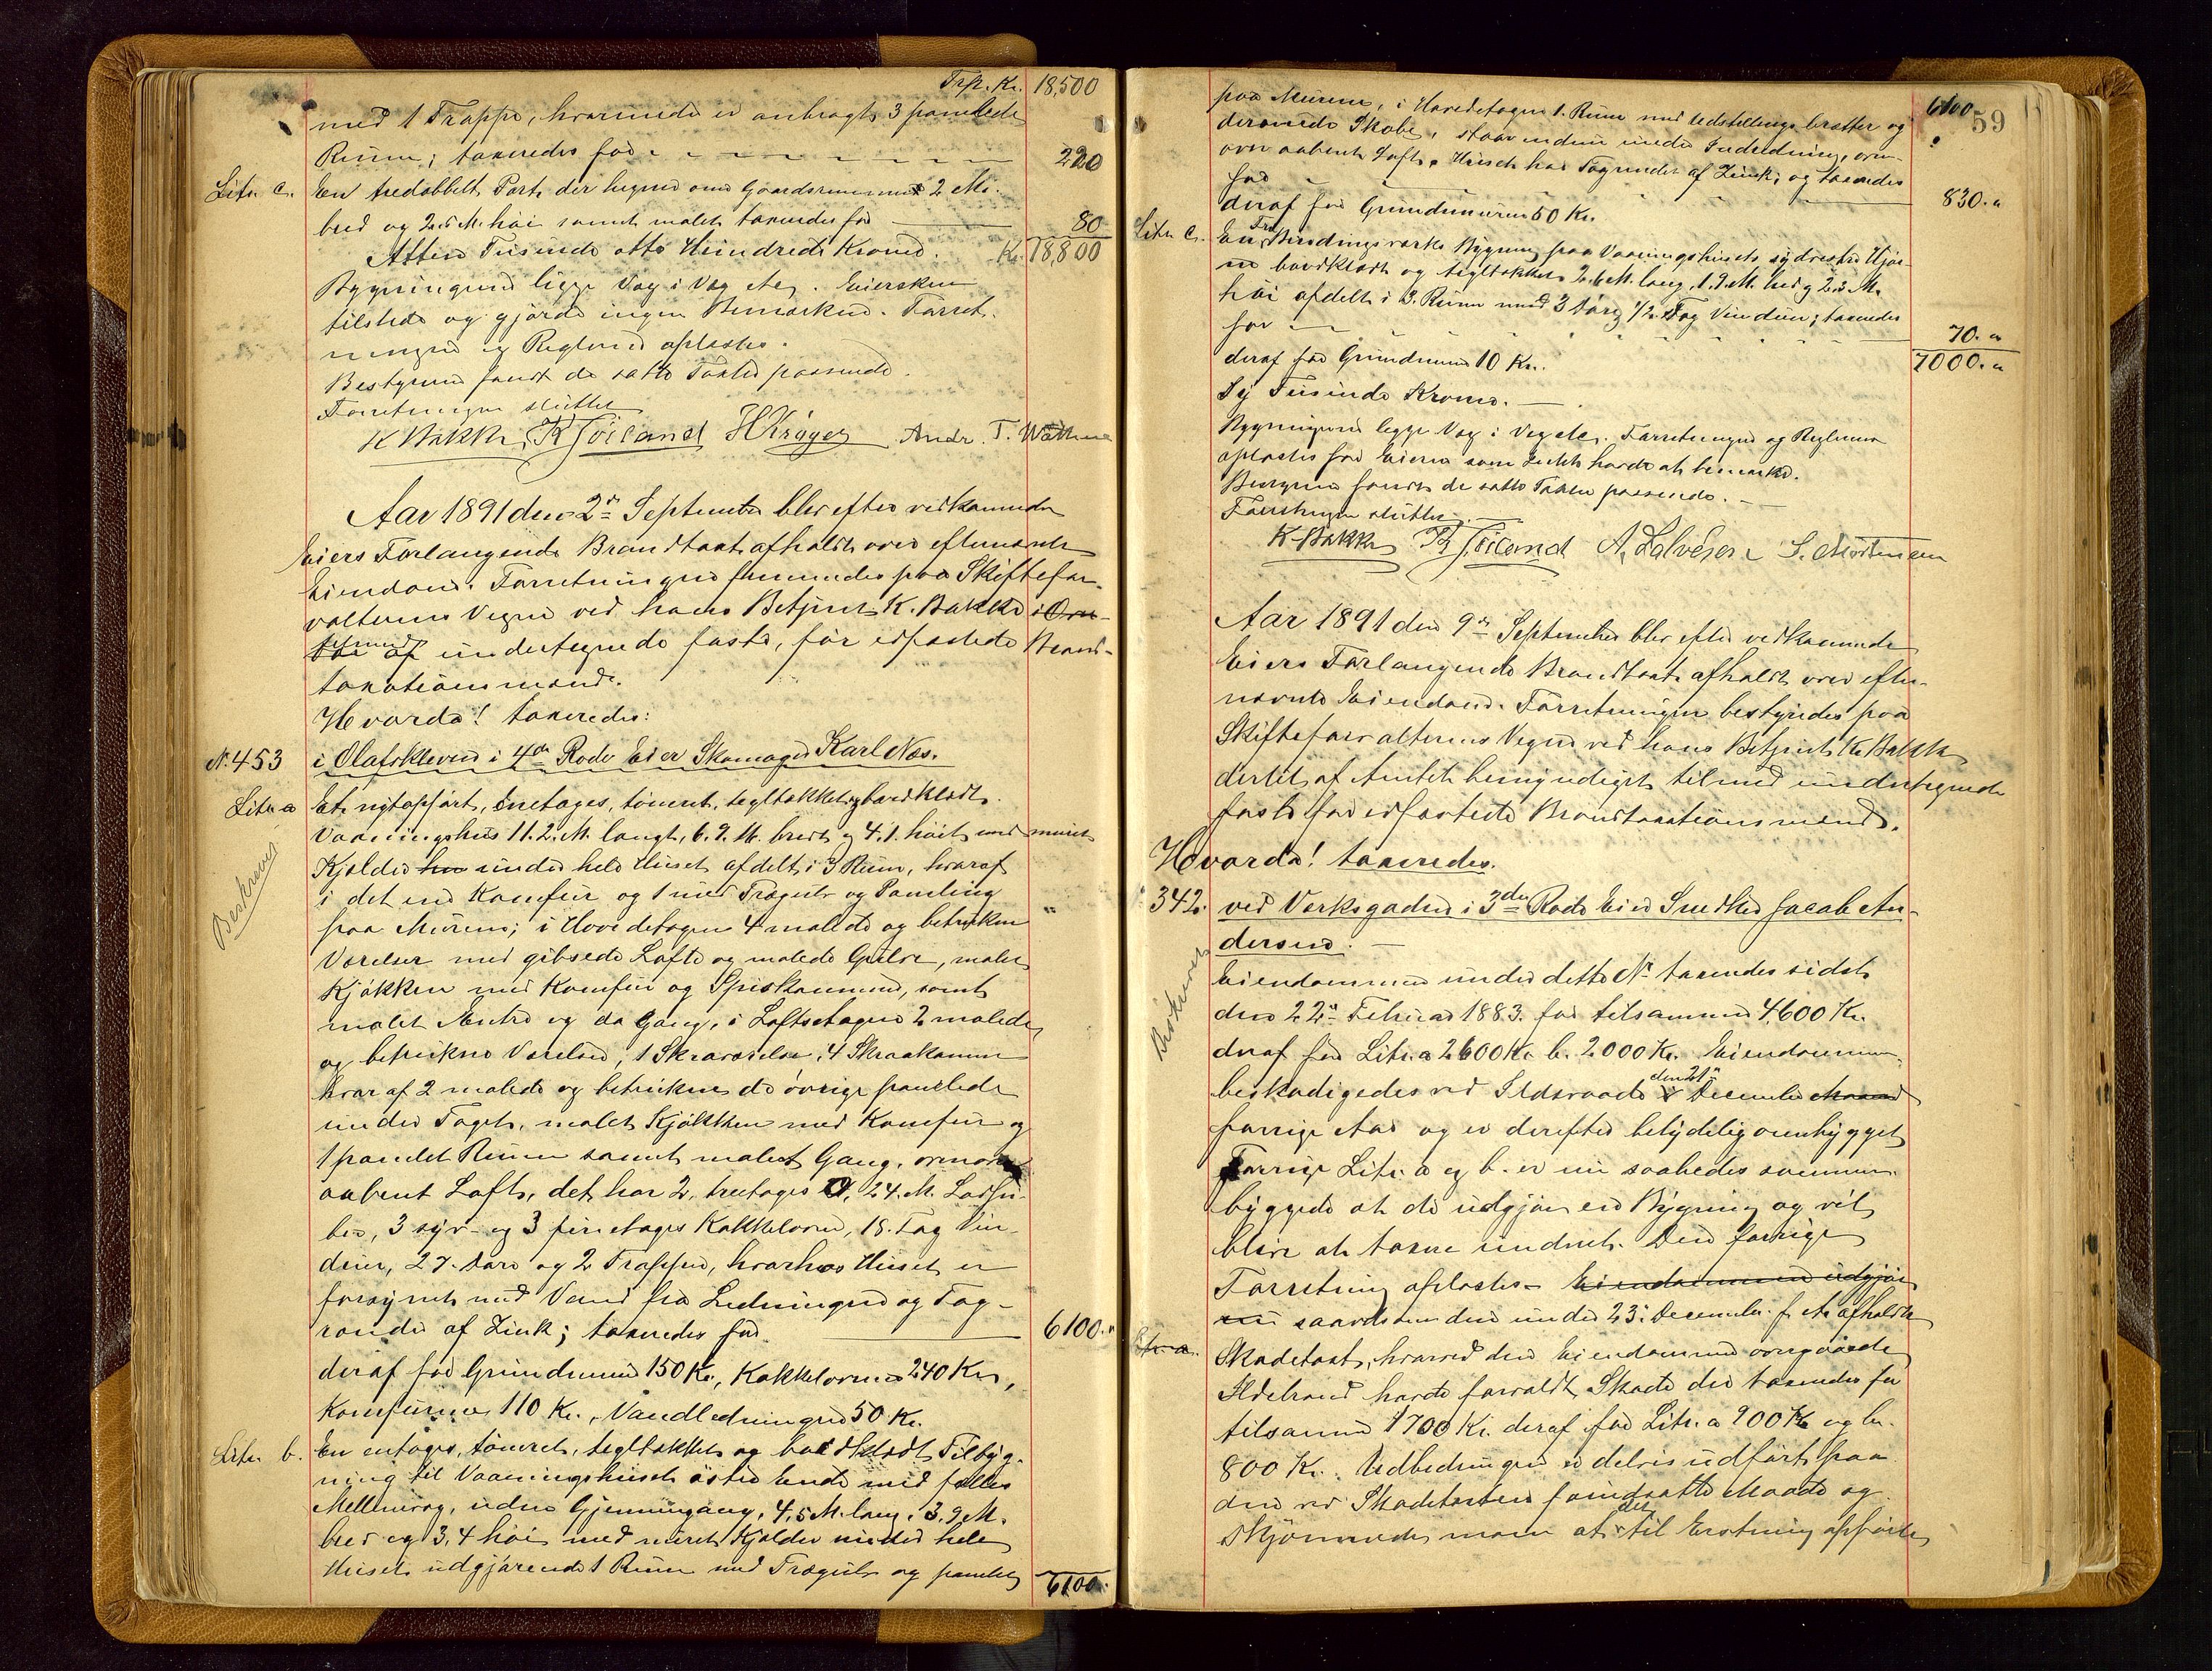 Trsp. Kr. 18,500
med 1 Trappe, hvormede er anbragt 3 panelede
Rum; taxeredes for 220
Litr. c. En tredobbelt Port der hegner om Gaardsrummet 2 M.
bred og 2.5 M. høi samt malet taxeredes for 80
Atten Tusinde otte Hundrede Kroner. Kr. 18,800
Bygningerne ligge Væg i Væg etc. Eiersken
tilstede og gjorde ingen Bemærkn. Forret-
ningen og Reglerne oplæstes.
Bestyreren fandt de satte Taxter passende.
Forretningen sluttet
K Bakke R Joiland H Krøger Andr. T. Wathne
Aar 1891 den 2den September blev efter vedkommende
Eiers Forlangende Brandtaxt afholdt over efternævnte
Eiendom. Forretningen fremmedes paa Skiftefor-
valterens Vegne ved hans Betjent K. Bakke i Over-
undertegnede faste, før edfæstede Brand-
taxationsmænd.
Hvorda! taxeredes:
N. 453 i Olafskleven i 4de Rode Eier Skomager Karl Næs.
Litr. a Et nytopført, enetages, tømret, tegltækket og bordklædt
Vaaningshus 11.2. M. langt, 6.9. M. bredt og 4.1. høit med muret
Kjelder under hele Huset afdelt i 3 Rum, hvoraf
Beskreven
i det ene Komfur og 1 med Trægulv og Paneling
paa Muren; i Hovedetagen 4 malede og betrukne
Værelser med gibsede Lofte og malede Gulve, malet
Kjøkken med Komfur og Spiskammer, samt
malet Entre og do Gang, i Loftsetagen 2 malede
og betrukne Værelser, 1 Skraaværelse, 4 Skraakamre
hvoraf 2 malede og betrukne de øvrige panelede
under Taget, malet Kjøkken med Komfur og
1 panelet Rum samt malet Gang, ovenover
aabent Loft, det har 2, treetages 24. M. Ladpi-
ber, 3 syv- og 3 fireetages Kakkelovne, 18. Fag Vin-
duer, 27. Døre og 2 Trapper, hvorhos Huset er
forsynet med Vand fra Ledningen og Tag-
render af Zink; taxeredes for 6100.
deraf for Grundmuren 150 Kr., Kakkelovnene 240 Kr.,
Komfurene 110 Kr., Vandledningen 50 Kr.
Litr. b. En enetages, tømret, tegltækket og bordklædt Tilbyg-
ning til Vaaningshusets østre Ende med fælles
Mellemvæg, uden Gjennemgang, 4,5 M. lang, 3.9 M.
bred og 3.4 høi med muret Kjelder under hele
Huset udgjørende 1 Rum med Trægulv og panelet
6100.
59
6100
paa Muren, i Hovedetagen 1. Rum med Udstillings bretter og
derunder Skabe, staar endnu under Indredning, oven-
over aabent Loft. Huset har Tagrender af Zink; og taxeredes
for 830.
deraf for Grundmuren 50 Kr.
Litr. c. En Bindingsværks Bygning paa Vaaningshusets sydvestre Hjør-
ne bordklædt og tegltækket 2.6 M. lang, 1.9 M. bred og 2.3 M.
høi afdelt i 3. Rum med 3 Døre 1/2. Fag Vinduer; taxeredes
for 70.
deraf for Grundmuren 10 Kr. 7000.
Syv Tusinde Kroner.
Bygningerne ligge Væg i Væg etc. Forretningen og Reglerne
oplæstes for Eieren som Intet havde at bemærke.
Bestyreren fandt de satte Taxter passende.
Forretningen sluttet.
K. Bakke R Joiland A. Salvesen S. Mortensen
Aar 1891 den 9de September blev efter vedkommende
Eiers Forlangende Brandtaxt afholdt over efter-
nævnte Eiendom. Forretningen bestyredes paa
Skifteforvalterens Vegne ved hans Betjent K. Bakke
dertil af Amtet bemyndiget tilmed undertegnede
faste før edfæstede Brandtaxationsmænd.
Hvorda! taxeredes.
342. ved Verksgaden i 3die Rode Eier Snedker Jacob An-
dersen.
Beskreven
Eiendommen under dette No taxeredes sidst
den 22de Februar 1883 for tilsammen 4,600 Kr.
deraf for Litr. a 2600 Kr. b. 2,000 Kr. Eiendommen
beskadigedes ved Ildsvaade den 21de December
forrige Aar og er derefter betydelig ombygget
Forrige Litr. a og b. er nu saaledes sammen-
byggede at de udgjør en Bygning og vil
blive at taxere underet. Den forrige
Forretning oplæstes Eiendommen udgjør
nu saavelsom den under 23de December f. A. afholdte
Litr. a. Skadetaxt, hvorved den Eiendommen overgaaede
Ildebrand havde forvoldt Skade der taxeredes for
tilsammen 1700 Kr. deraf for Litr. a 900 Kr. og b.
800 Kr. Udbedringen er delvis udført paa
den ved Skadetaxten forudsatte Maade og
skjønnede man at det til Erstatning opførte